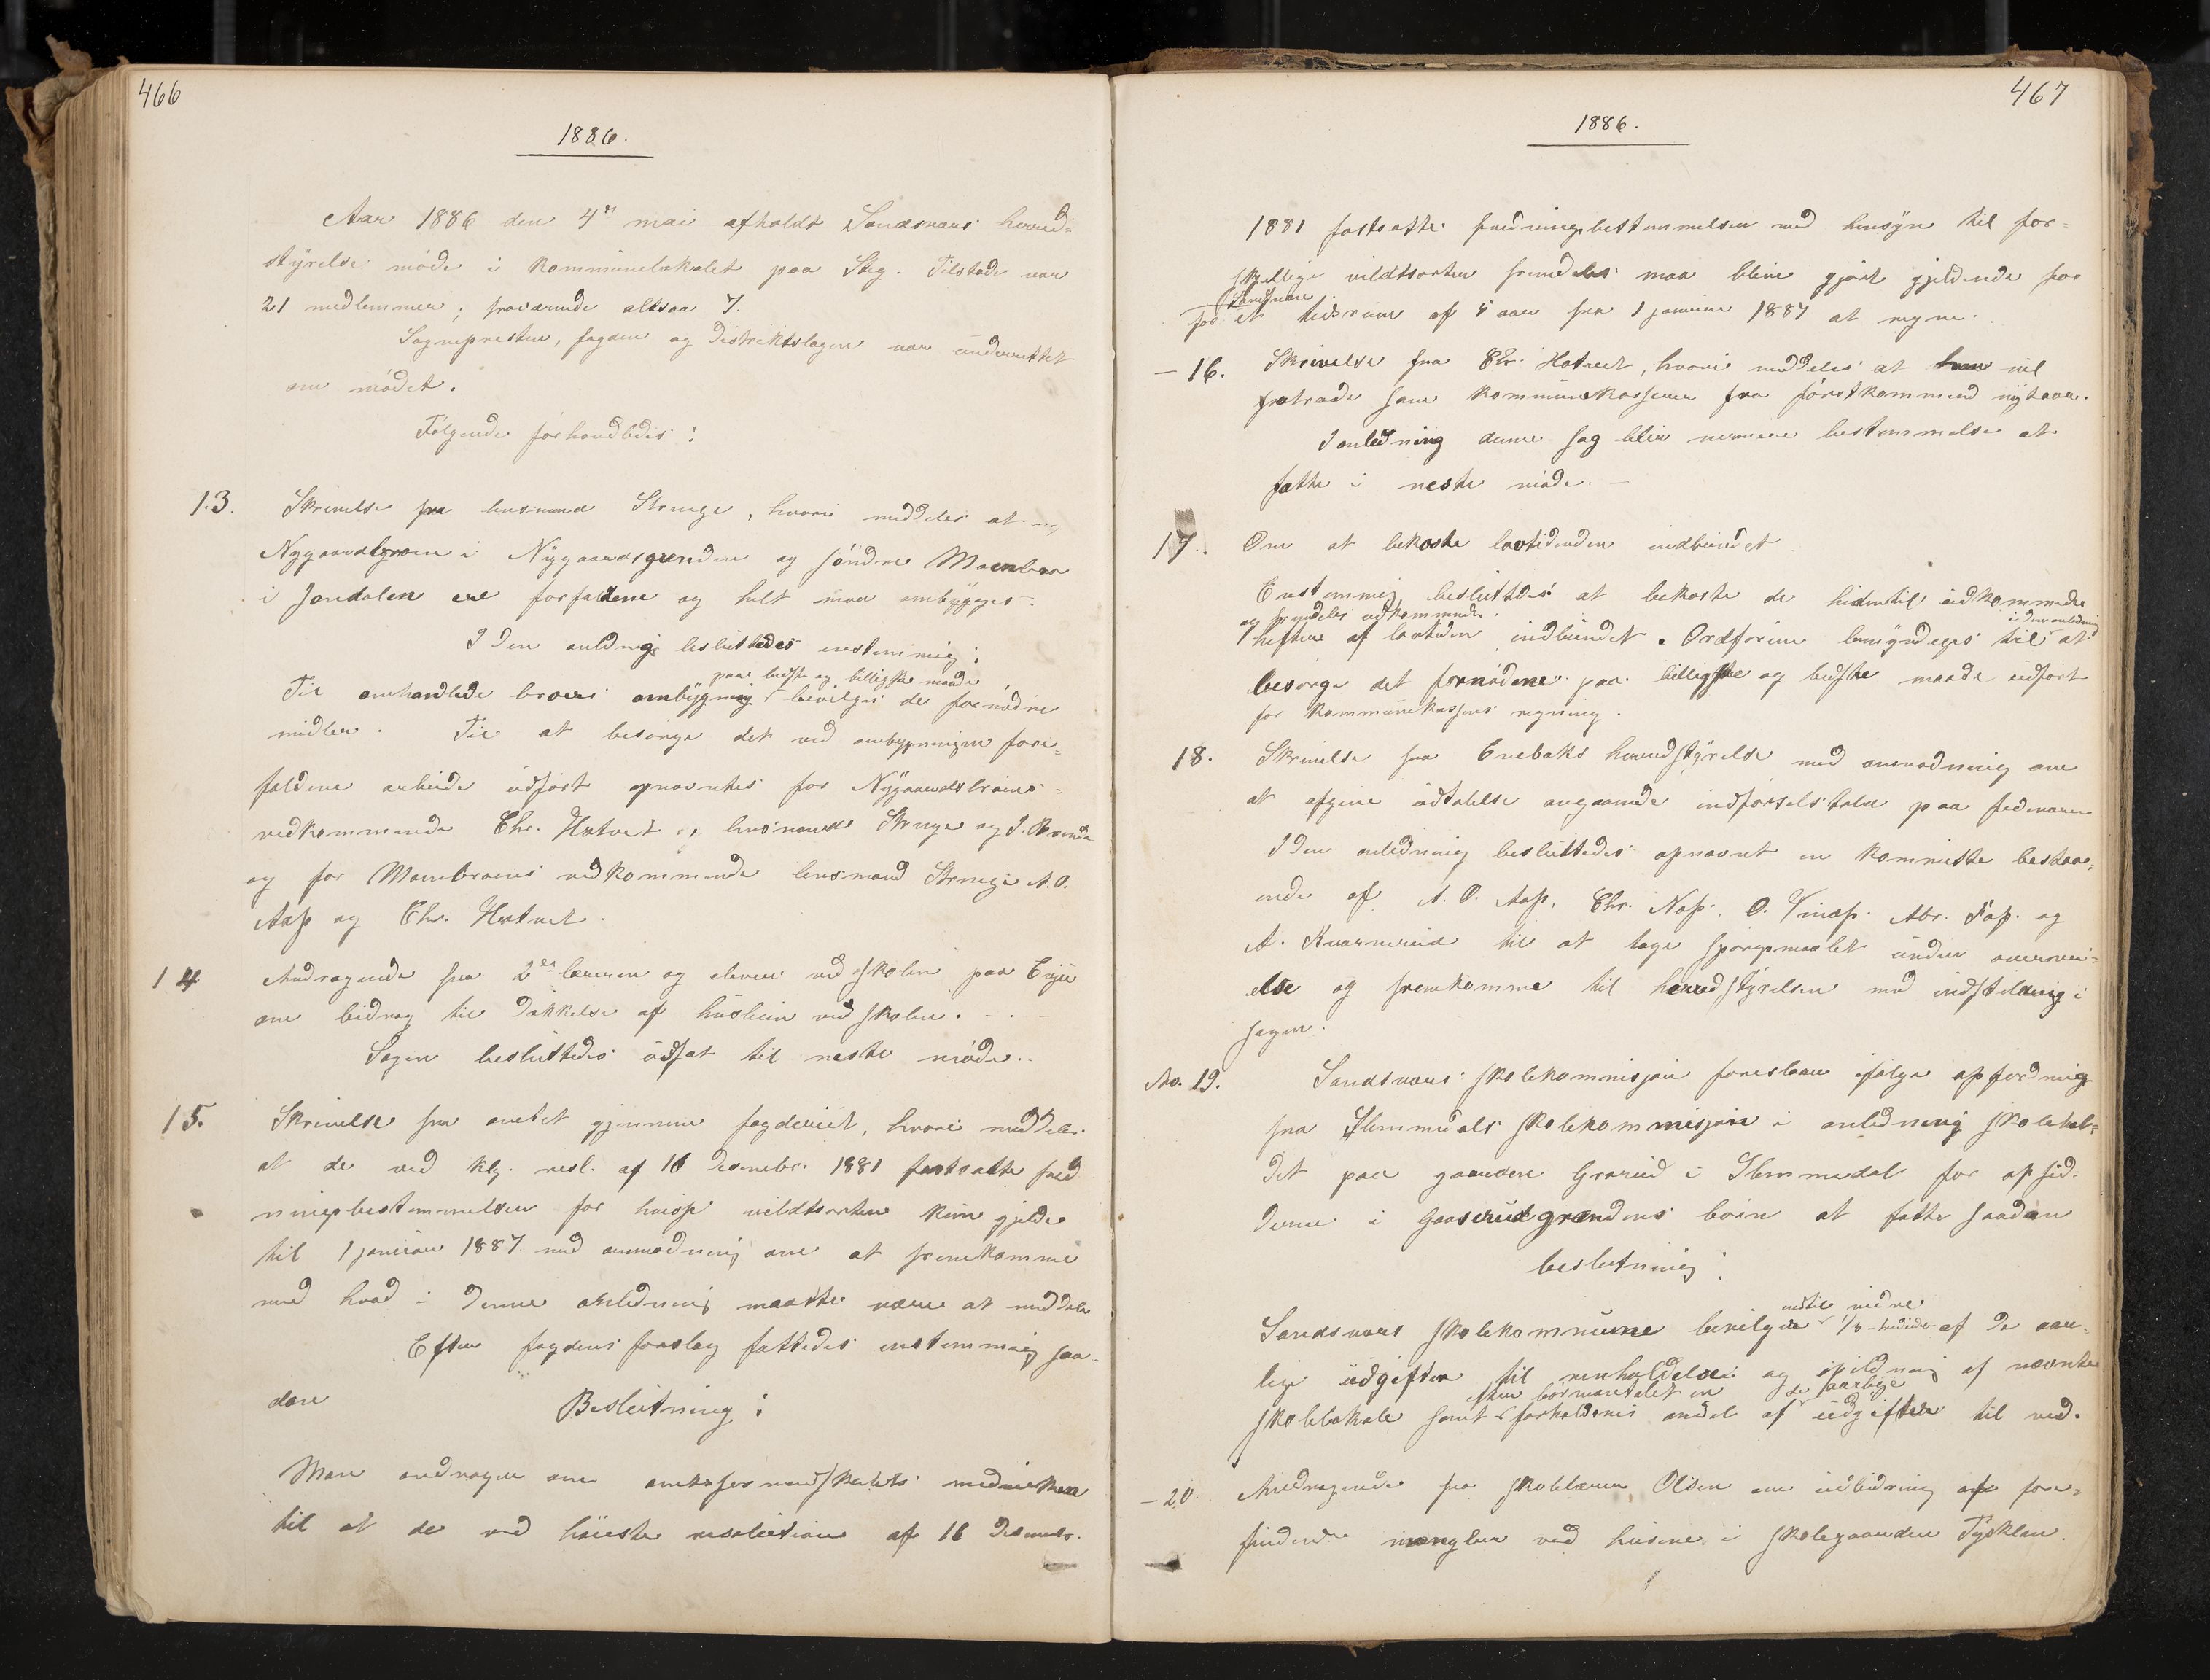 466
1886.
Aar 1886 den 4n mai afholdt Sandsværs herred=
styrelse møde i kommunelokalet paa Steg. Tilstede var
21 medlemmer; fraværende altsaa 7.
Sognepresten, fogden og distriktslægen var underrettet
om mødet.
Følgende forhandledes:
13. Skrivelse fra lensmand Strenge, hvori meddeles at
Nygaardbroen i Nygaardsgrenden og søndre Moenbro
i Jondalen ere forfaldene og helt maa ombygges.
I den anledning besluttedes enstemmig:
paa bedste og billigste maade
Til omhandlede broers ombygning bevilges de fornødne
midler. Til at besørge det ved ombygningen fore=
faldene arbeide udført opnævntes for Nygaardsbroens
vedkommende Chr. Hotvet, lensmand Strenge og
og for Moenbroens vedkommende lensmand Strenge A. O.
Aas og Chr. Hotvet.
14 Andragende fra 2den læreren og eleven ved skolen paa
om bidrag til dækkelse af husleien ved skolen.
Sagen besluttedes udsat til neste møde.
15. Skrivelse fra amtet gjennem fogderiet, hvori meddeles
at de ved kgl. resl. af 16 decmbr. 1881 fastsatte fred
ningsbestemmelser for visse vildtsorter kun gjelder
til 1 januar 1887 med anmodning om at fremkomme
med hvad i denne anledning maatte være at meddele
Efter fogdens forslag fattedes enstemmig saa-
dan Beslutning:
Man andrager om amtsformandskabets medvirken
til at de ved høieste resolution af 16 decembr.
467
1886.
1881 fastsatte fredningsbestemmelser med hensyn til for=
skjellige vildtsorter fremdeles maa blive gjort gjeldende for
Sandsvær
for et tidsrum af 5 aar fra 1 januar 1887 at regne.
- 16. Skrivelse fra Chr. Hotvet, hvori meddeles at han vil
fratræde som kommunekasserer fra førstkommend nytaar.
I anledning denne sag blir nærmere bestemmelse at
fatte i neste møde. -
17. Om at bekoste lovtidenden indbundet.
Enstemmig besluttedes at bekoste de hidentil udkommende
og fremdeles udkommende i den anledning
hefter af lovtiden indbundet. Ordføreren bemyndiges til at
besørge det fornødne paa billigste og bedste maade udført
for kommunekassens regning.
18. Skrivelse fra Enebaks herredstyrelse med anmodning om
at afgive udtalelse angaaende indførselstold paa fedevarer
I den anledning besluttedes opnævnt en komite bestaa=
ende af A. O. Aas, Chr. O. Abr. og
A. Kvarnerud til at tage spørgsmaalet under overvei=
else og fremkomme til herredstyrelsen med indstilling i
sagen.
No. 19. Sandsværs skolekommisjon foreslaar ifølge opfordring
fra Flemmedals skolekommisjon i anledning skolehol=
det paa gaarden Grorud i Flemmedal for opsid=
derne i Gaaserudgrændens børn at fatte saadan
beslutning:
indtil videre
Sandsvers skolekommune bevilger 1/3 tredidel af de aar-
lige udgifter til renholdelse og ildning af nævnte
efter børneantalet de aarlige
skolelokale samt forholdsvis andel af udgifter til ved.
- 20. Andragende fra skolelærer Olsen om udbedring af fore=
findende mangler ved husene i skolegaarden Tysklan.